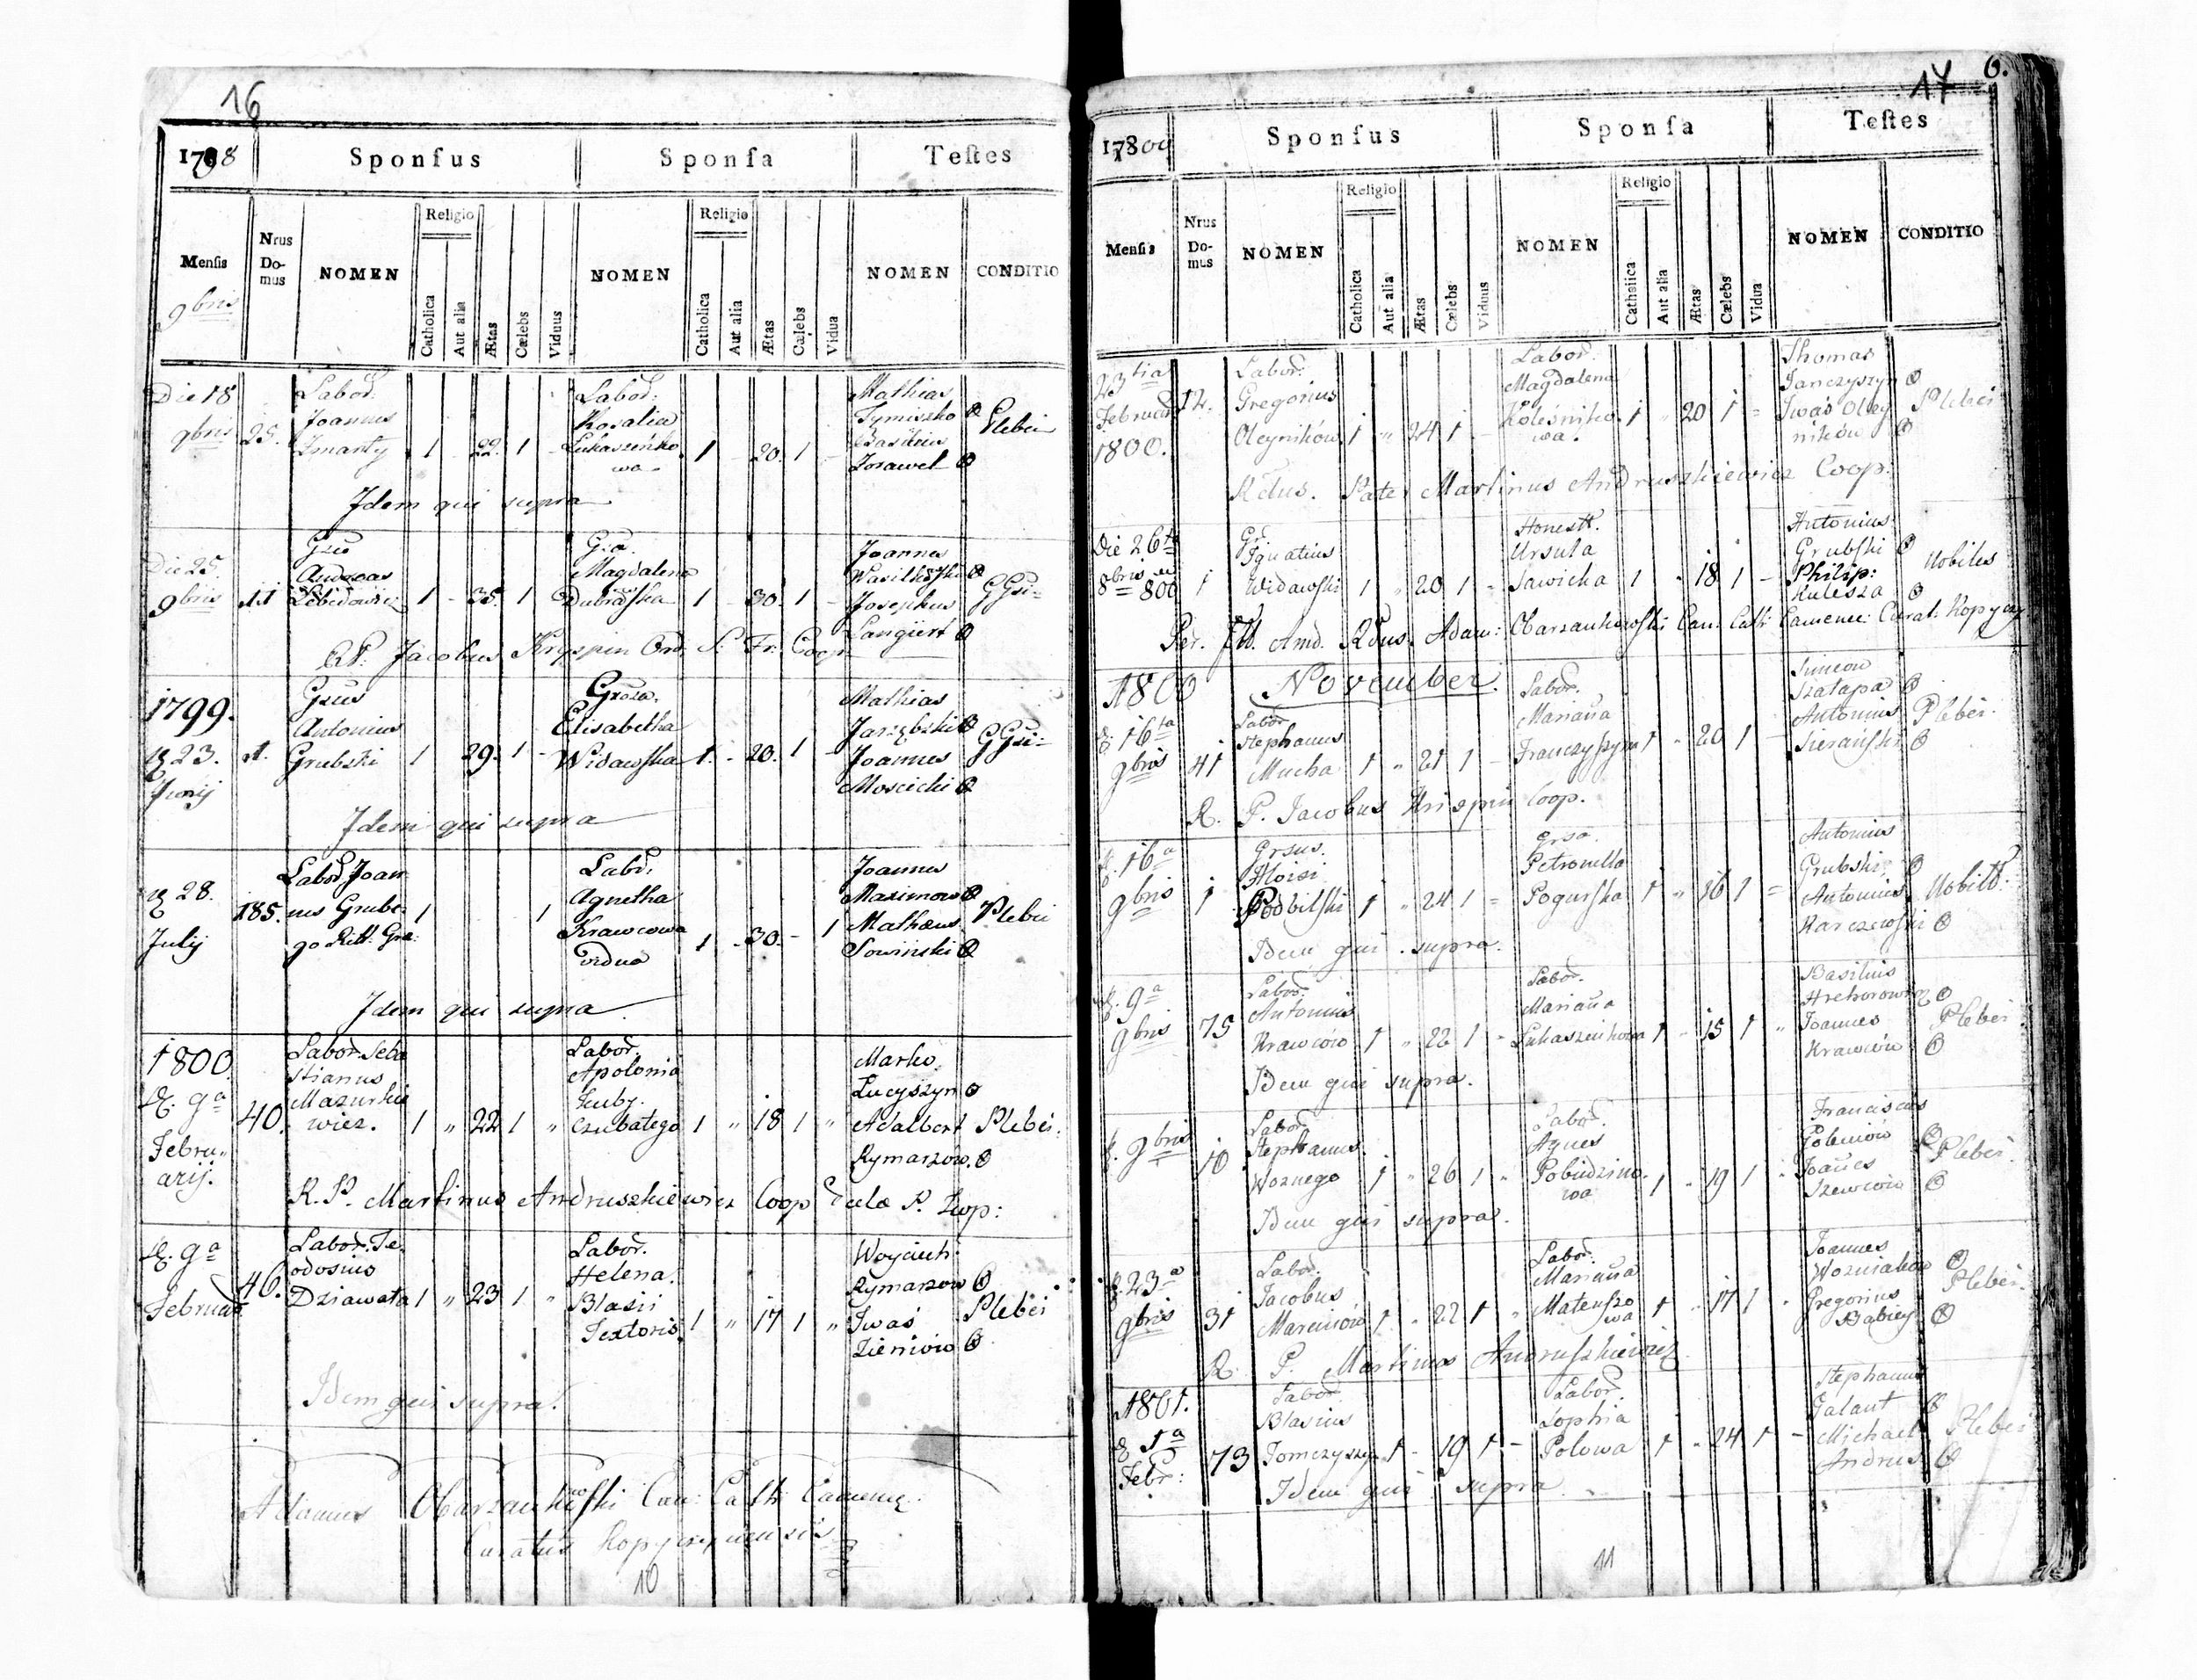 16
1798 Sponsus Sponsa Testes
Mensis Nrus Domus NOMEN Religio Catholica Aut alia Ætas Cælebs Viduus NOMEN Religio Catholica Aut alia Ætas Cælebs Vidua NOMEN CONDITIO
9bris
Die 18 Labor: Labor: Mathias
9bris 25. Joannes Rosalia Tymiszko Plebei
Zmarty 1 22. 1 Lukaszeńko 1 20. 1 Basilius
wa
Idem qui supra
Die 25. Joannes
Andreas Magdalena
9bris 11 1 35. 1 1 30. 1 Josephus GGsi
Langiert
RP. Jacobus Kryspin Ord. S. Fr. Coop
1799. Gsus Grosa. Mathias
Antonius Elisabetha Jarzębski
23. 1. Grubski 1 29. 1 Widawska 1. 20. 1 Joannes GGsi
Junij Moscicki
Idem qui supra
28. Labor Joan Labor. Joannes
185. nes Grube 1 1 Agnetha Maximow
July go Ritt. Græ: Krawcowa 1 30. 1 Mathæus Plebei
vidua Sowinski
Idem qui supra
1800. Labor Seba Labor. Marko
9a stianus Apolonia Lucyszyn
40. Mazurkie Jenby.
wicz. 1 " 22 1 " Czubatego 1 " 18 1 " Adalbert Plebei.
Febru Rymarzow.
arij.
R. P. Martinus Andruszkiewicz Coop
9a Labor. Te Labor. Woyciech
40. odosius Helena. Rymarzow
Februar Dziawata 1 " 23 1 " Blasii Plebei
Textoris 1 " 17 1 " Iwaś
Zieniow
Idem qui supra.
Adamus Obarzankowski Can: Cath: Camene:
Curatus Kopyczyncensis
10
6.
17
1800 Sponsus Sponsa Testes
Mensis Nrus Domus NOMEN Religio Catholica Aut alia Ætas Cælebs Viduus NOMEN Religio Catholica Aut alia Ætas Cælebs Vidua NOMEN CONDITIO
23tia Labor. Labor. Thomas
Februar 12. Gregorius Magdalena Janczyszyn
1800. Oleyników 1 " 24 1 Koleśniko 1 " 20 1 Iwaś Oley Plebei
wa. ników
Rdus. Pater Martinus Andruszkiewicz Coop:
Die 26ta Gr. Honestt. Antonius
Ignatius Ursula Grubski Nobiles
8bris 800 1 Widawski 1 " 20 1 Sawicka 1 " 18 1 Philip:
Kulesza
Per. Ill. Amd. Rdus. Adam: Obarzankowski Can: Cath: Camenec: Curat: Kopyczy
1800 November. Labor. Simeon
16ta Labor Mariana Szatapa
9bris 41 Stephanus Antonius Plebei.
Mucha 1 " 21 1 Franczyszyn 1 " 20 1 Sieranski
R. P. Jacobus Krispin Coop.
16a Grsus. Grsa. Antonius
9bris 1 Aloisi Petronella Grubski
Podbilski 1 " 24 1 Pogurska 1 " 16 1 Antonius Nobill.
Karczewski
Idem qui supra.
9a Labor. Labor. Basilius
9bris 75 Antonius Mariana Hrehorowicz
Krawców 1 " 22 1 Lukaszeńkowa 1 " 15 1 " Joannes Plebei
Krawców
Idem qui supra.
9bris Labor Labor. Franciscus
10 Stephanus. Agnes Goleniow Plebei.
Woznego 1 " 26 1 Pobudzino 1 " 19 1 Joañes
wa Szewciow
Idem qui supra.
23a Labor. Labor. Joannes
9bris 31 Jacobus Mariana Wozniakow Plebei.
Marciniów 1 " 22 1 " Mateuszo 1 " 17 1 Gregorius
wa Babiey
R. P. Martinus Andruszkiewicz
1801. Labor Labor. Stephanus
1a Blasius Zophia Galant
Febr: 73 Tomczyszyn 1 19 1 Polowa 1 " 24 1 Michael Plebei
Andrus
Idem qui supra
11